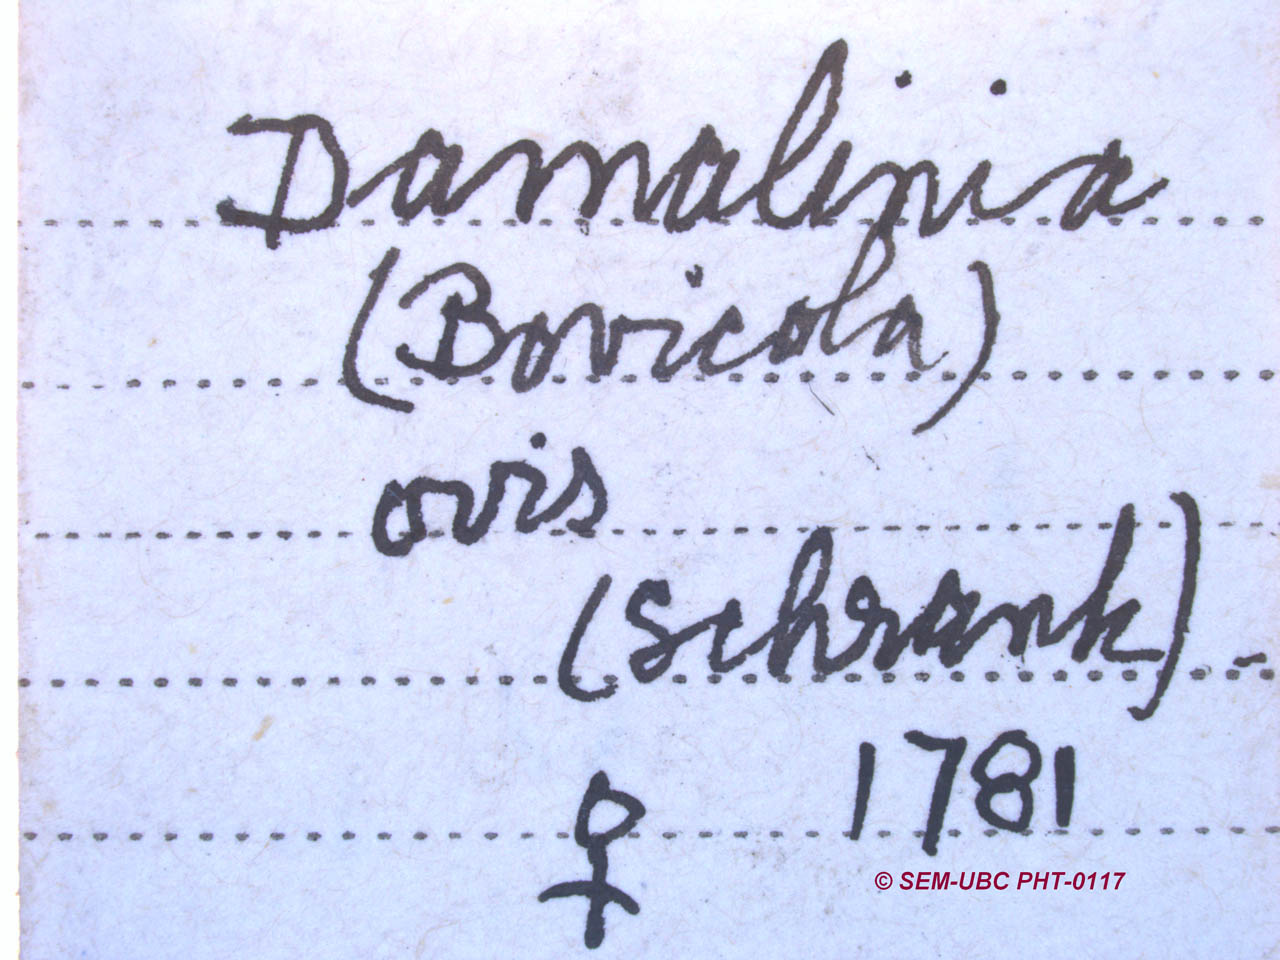 Damalinia
(Bovicola)
ovis
(Schrank)-
1781
♀
© SEM-UBC PHT-0117